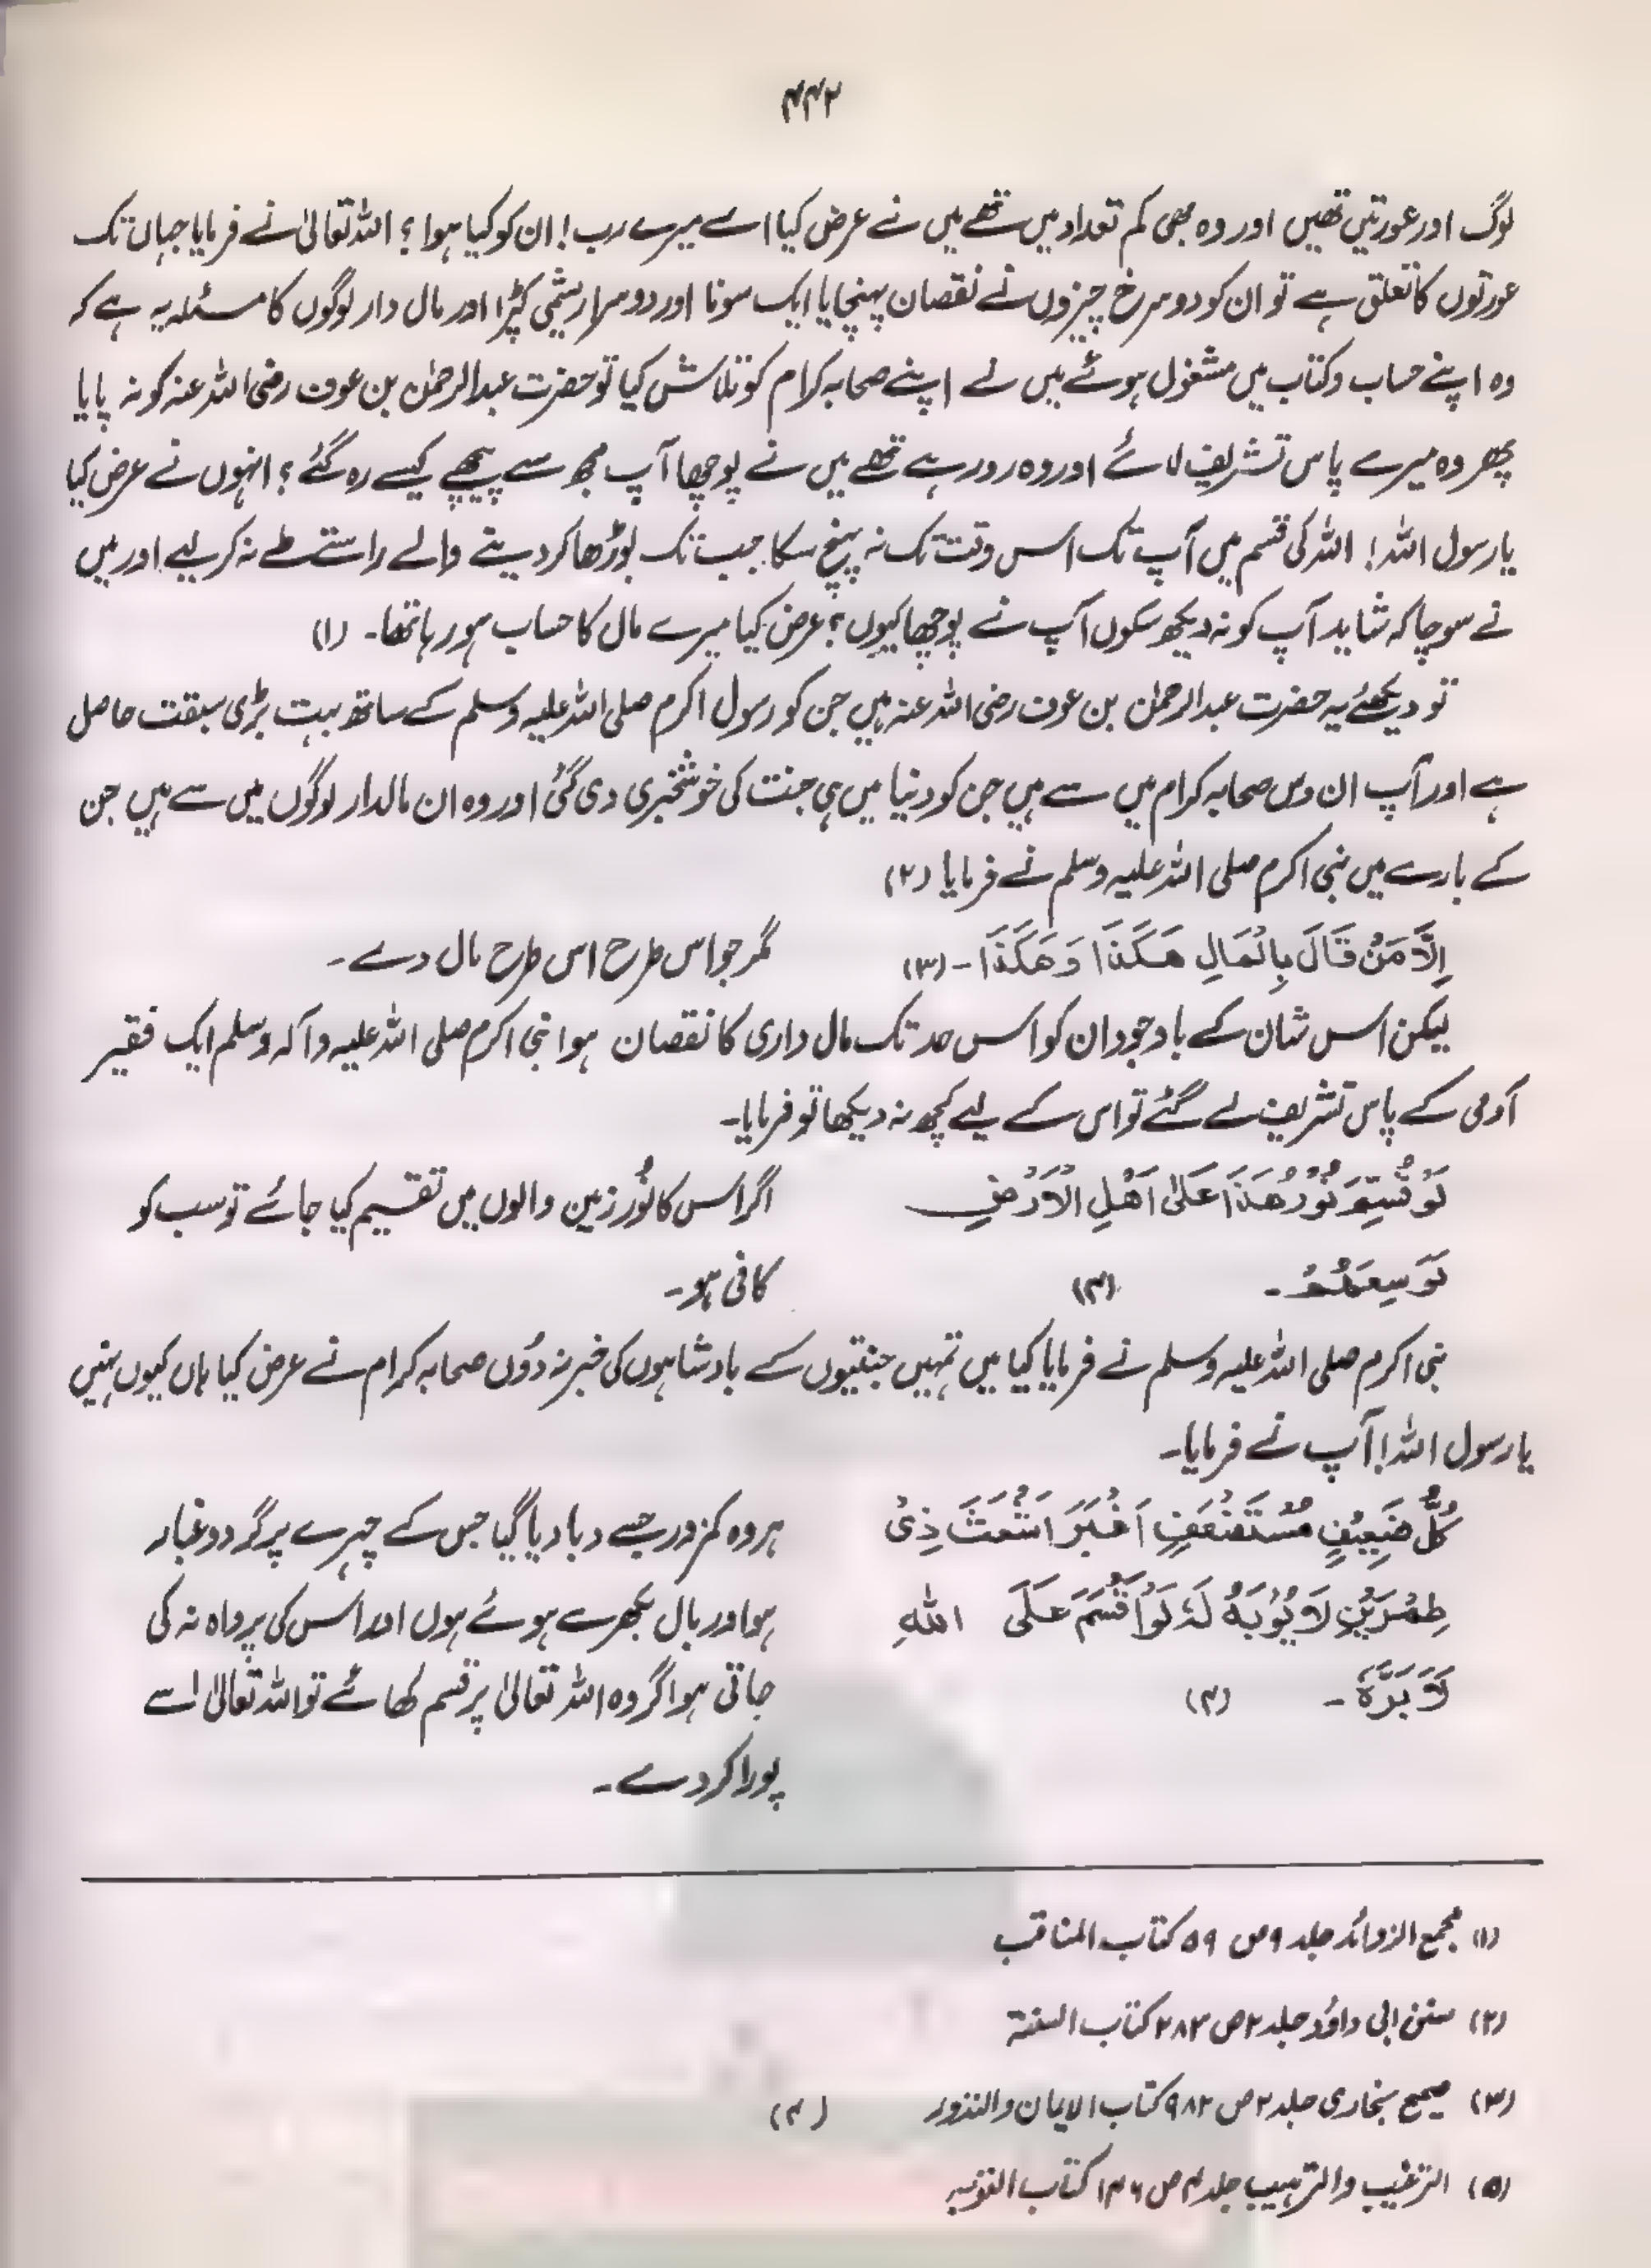 ۴۴۲
لوگ اور عورتیں تھیں اور وہ بھی کم تعداد میں تھے میں نے عرض کیا اے میرے رب! ان کو کیا ہوا؟ اللہ تعالیٰ نے فرمایا جہاں تک
عورتوں کا تعلق ہے تو ان کو دو سرخ چیزوں نے نقصان پہنچایا ایک سونا اور دوسرا ریشمی کپڑا اور مال دار لوگوں کا مسئلہ یہ ہے کہ
وہ اپنے حساب و کتاب میں مشغول ہوئے میں نے اپنے صحابہ کرام کو تلاش کیا تو حضرت عبدالرحمٰن بن عوف رضی اللہ عنہ کو نہ پایا
پھر وہ میرے پاس تشریف لائے اور وہ رو رہے تھے میں نے پوچھا آپ مجھ سے پیچھے کیسے رہ گئے؟ انہوں نے عرض کیا
یا رسول اللہ! اللہ کی قسم میں آپ تک اس وقت تک نہ پہنچ سکا جب تک بوڑھا کر دینے والے راستے طے نہ کر لیے اور میں
نے سوچا کہ شاید آپ کو نہ دیکھ سکوں آپ نے پوچھا کیوں؟ عرض کیا میرے مال کا حساب ہو رہا تھا۔ (۱)
تو دیکھئے یہ حضرت عبدالرحمٰن بن عوف رضی اللہ عنہ ہیں جن کو رسول اکرم صلی اللہ علیہ وسلم کے ساتھ بہت بڑی سبقت حاصل
ہے اور آپ ان دس صحابہ کرام میں سے ہیں جن کو دنیا میں ہی جنت کی خوشخبری دی گئی اور وہ ان مالدار لوگوں میں سے ہیں جن
کے بارے میں نبی اکرم صلی اللہ علیہ وسلم نے فرمایا (۲)
اِلَّا مَنْ قَالَ بِالْمَالِ هَكَذَا وَهَكَذَا۔ (۳) مگر جو اس طرح اس طرح مال دے۔
لیکن اس شان کے باوجود ان کو اس حد تک مال داری کا نقصان ہوا نبی اکرم صلی اللہ علیہ وآلہ وسلم ایک فقیر
آدمی کے پاس تشریف لے گئے تو اس کے لیے کچھ نہ دیکھا تو فرمایا۔
لَوْ قُسِّمَ نُوْرُ هَذَا عَلَىٰ اَهْلِ الْاَرْضِ اگر اس کا نُور زمین والوں میں تقسیم کیا جائے تو سب کو
لَوَسِعَهُمْ۔ (۴) کافی ہو۔
نبی اکرم صلی اللہ علیہ وسلم نے فرمایا کیا میں تمہیں جنتیوں کے بادشاہوں کی خبر نہ دُوں صحابہ کرام نے عرض کیا ہاں کیوں نہیں
یا رسول اللہ! آپ نے فرمایا۔
كُلُّ ضَعِيْفٍ مُسْتَضْعَفٍ اَغْبَرَ اَشْعَثَ ذِىْ ہر وہ کمزور جسے دبا دیا گیا جس کے چہرے پر گرد و غبار
طِمْرَيْنِ لَا يُوْبَهُ لَهُ لَوْ اَقْسَمَ عَلَى اللهِ ہو اور بال بکھرے ہوئے ہوں اور اس کی پرواہ نہ کی
لَاَبَرَّهُ۔ (۴) جاتی ہو اگر وہ اللہ تعالیٰ پر قسم کھائے تو اللہ تعالیٰ اسے
پورا کر دے۔
(۱) مجمع الزوائد جلد ۹ ص ۵۹ کتاب المناقب
(۲) سنن ابی داؤد جلد ۲ ص ۲۸۳ کتاب السنۃ
(۳) صحیح بخاری جلد ۲ ص ۹۸۲ کتاب الایمان والنذور (۴)
(۵) الترغیب والترہیب جلد ۴ ص ۱۴۶ کتاب التوبہ